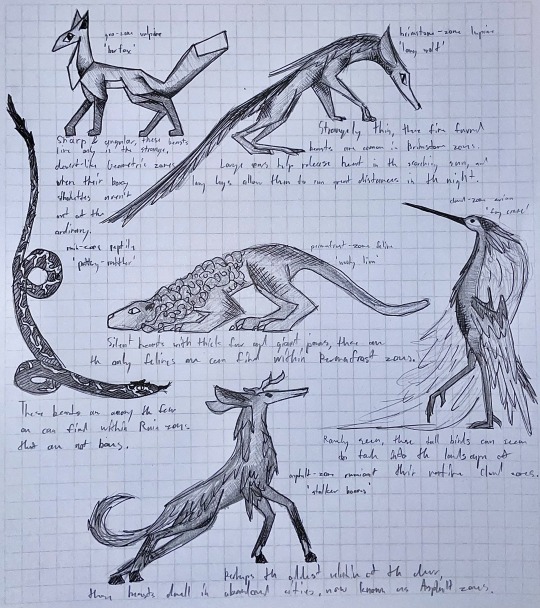 geo-zone vulpine
'box fox'
brimstone-zone lupine
'long wolf'
Sharp & angular, these beasts
live only in the strange,
desert-like Geometric zones
when their boxy
silhouettes aren't
out of the
ordinary.
Strangely thin, these fine furred
beasts are common in Brimstone zones.
Large ears help release heat in the searching sun, and
long legs allow them to run great distances in the night.
cloud-zone avian
ruin-zone reptile
'pottery-rattler'
permafrost-zone feline
lion'
Silent beasts with thick fur and giant paws, these are
the only felines one can find within Permafrost zones.
These beasts are among the few
one can find within Ruin zones
that are not bony.
Rarely seen, these tall birds can seem
to fade into the landscape of
their native Cloud zones.
asphalt-zone ruminant
'stalker
Perhaps the oddest of the
these beasts dwell in abandoned cities, now known as Asphalt zones.